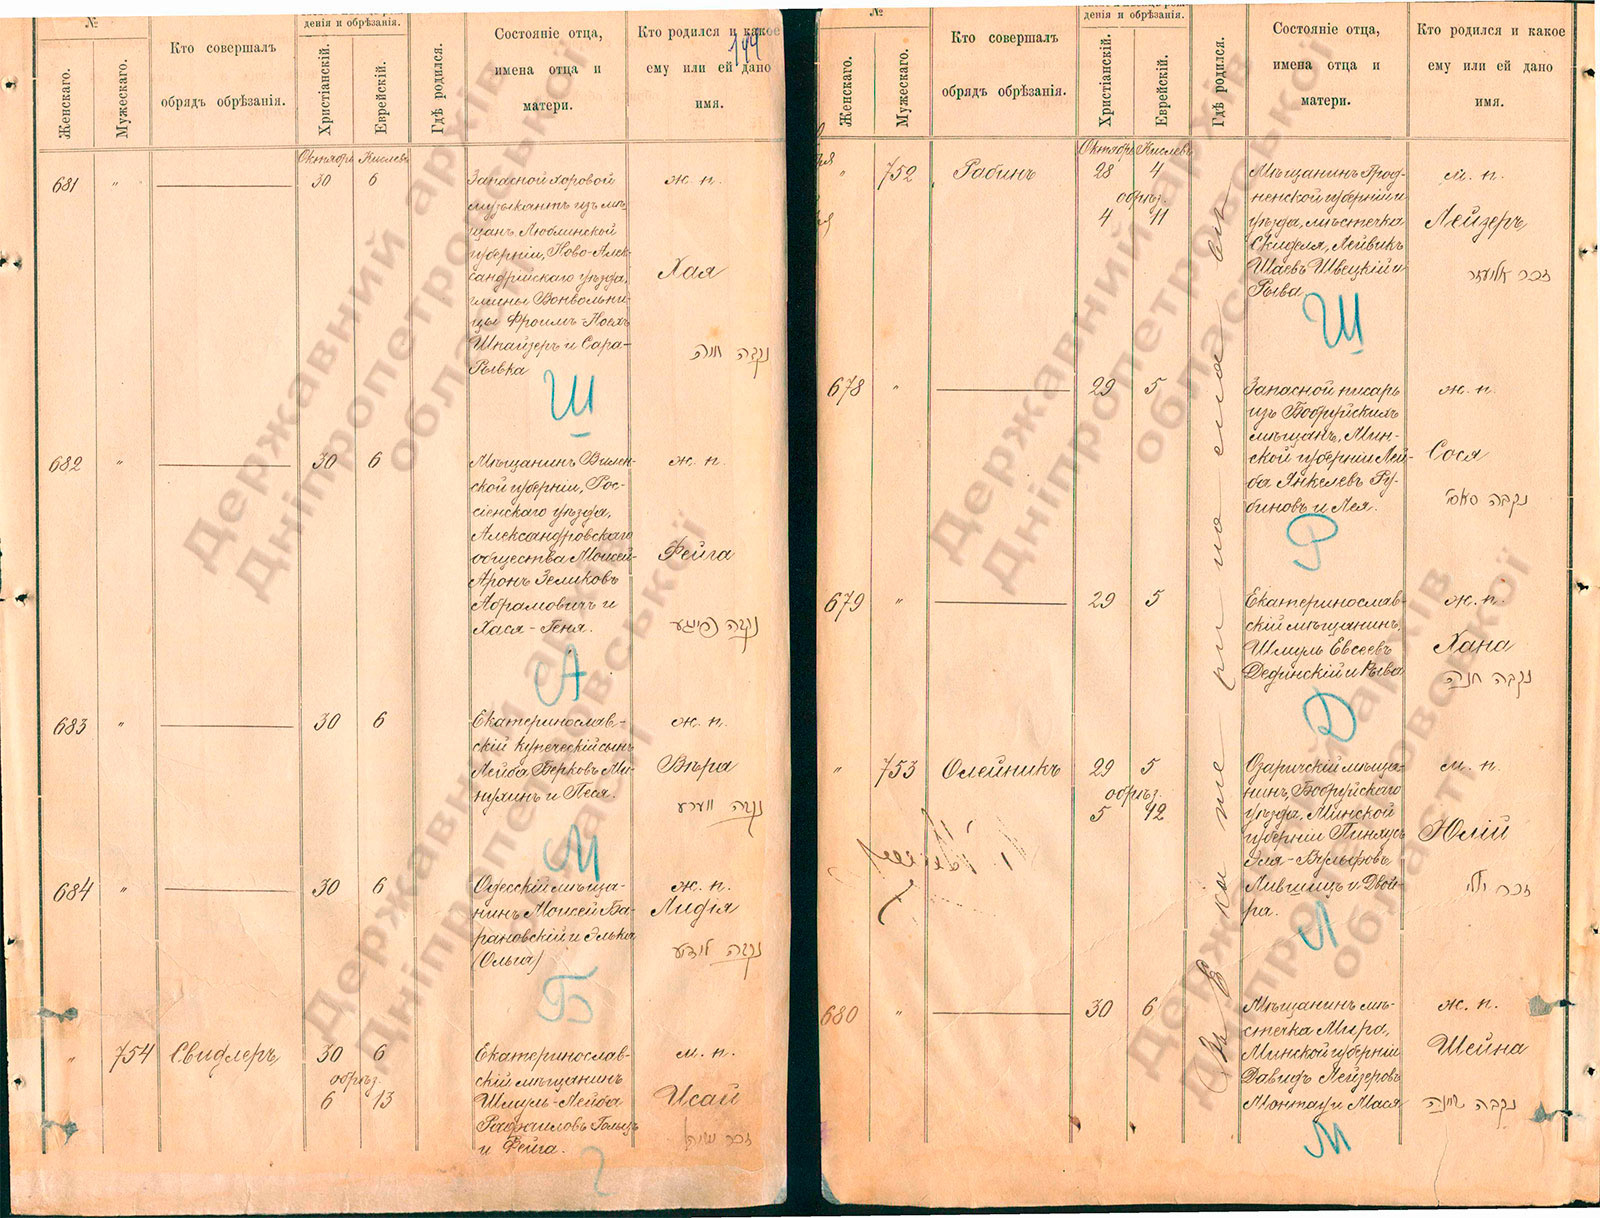 №
Женскаго.
Мужескаго.
Кто совершалъ
обрядъ обрѣзанія.
денія и обрѣзанія.
Христіанскій.
Еврейскій.
Гдѣ родился.
Состояніе отца,
имена отца и
матери.
Кто родился и какое
ему или ей дано
имя.
144
Октябрь Кислевъ
681 " 30 6
Запасной хоровой
музыкантъ изъ мѣ-
щанъ Люблинской
губерніи, Ново-Алек-
сандрійскаго уѣзда,
гмины Вонвольни-
цы Фроимъ-Носехъ
Шнайзеръ и Сара-
Рывка
ж. п.
Хая
נקבה חיה
Ш
682 " 30 6
Мѣщанинъ Вилен-
ской губерніи, Рос-
сіенскаго уѣзда,
Александровскаго
общества Мовсей-
Аронъ Зеликовъ
Абрамовичъ и
Хася-Геня.
ж. п.
Фейга
נקבה פייגע
А
683 " 30 6
Екатеринослав-
скій купеческій сынъ
Лейба Берковъ Ми-
нухинъ и Песя.
ж. п.
Вѣра
נקבה ווערע
М
684 " 30 6
Одесскій мѣща-
нинъ Моисей Ба-
рановскій и Элька
(Ольга)
ж. п.
Лидія
נקבה לידיע
Б
" 754 Свидлеръ 30 6
обрѣз.
6 13
Екатеринослав-
скій мѣщанинъ
Шмуль-Лейба
Рафаиловъ Гольцъ
и Фейга.
м. п.
Исай
זכר ישיה
Г
№
Женскаго.
Мужескаго.
Кто совершалъ
обрядъ обрѣзанія.
денія и обрѣзанія.
Христіанскій.
Еврейскій.
Гдѣ родился.
Состояніе отца,
имена отца и
матери.
Кто родился и какое
ему или ей дано
имя.
Октябрь Кислевъ
" 752 Рабинъ 28 4
обрѣз.
4 11
Мѣщанинъ Грод-
ненской губерніи и
уѣзда, мѣстечка
Скиделя, Лейвикъ
Шаевъ Швецкій и
Рыва.
м. п.
Лейзеръ
זכר אליעזר
Ш
678 " 29 5
Запасной писарь
изъ Бобруйскихъ
мѣщанъ, Мин-
ской губерніи Лей-
ба Янкелевъ Ру-
биновъ и Лея.
ж. п.
Сося
נקבה סאסי
Р
679 " 29 5
Екатеринослав-
скій мѣщанинъ
Шмуль Евсеевъ
Дединскій и Рыва
ж. п.
Хана
נקבה חנה
Д
" 753 Олейникъ 29 5
обрѣз.
5 12
Озаричскій мѣща-
нинъ, Бобруйскаго
уѣзда, Минской
губерніи Пинхусъ
Эля-Вульфовъ
Лившицъ и Двой-
ра.
м. п.
Юлій
זכר יולי
Л
680 " 30 6
Мѣщанинъ мѣ-
стечка Мира,
Минской губерніи
Давидъ Лейзеровъ
Монтагъ и Мася
ж. п.
Шейна
נקבה שיינה
М
Державний архів
Дніпропетровської
області
Державний архів
Дніпропетровської
області
Державний архів
Дніпропетровської
області
Державний архів
Дніпропетровської
області